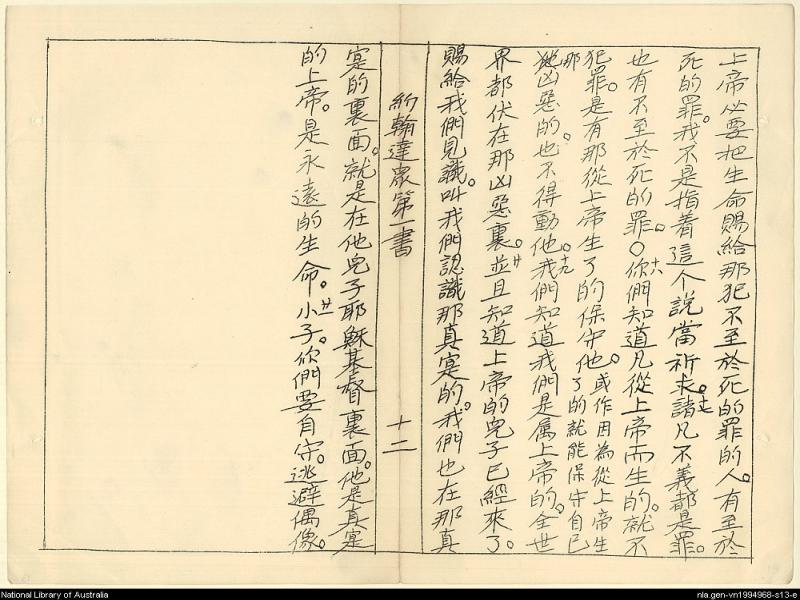 上帝必要把生命賜給那犯不至於死的罪的人。有至於
死的罪。我不是指着這个說當祈求。十七諸凡不義都是罪。
也有不至於死的罪。○十八你們知道凡從上帝而生的。就不
犯罪。是有那從上帝生了的保守他。或作因為從上帝生了的就能保守自己那
犹凶惡的。也不得動他。十九我們知道我們是属上帝的。全世
界都伏在那凶惡裏。廿並且知道上帝的兒子已經來了。
賜給我們見識。叫我們認識那真寔的。我們也在那真
約翰達眾第一書 十二
寔的裏面。就是在他兒子耶穌基督裏面。他是真寔
的上帝。是永遠的生命。廿一小子。你們要自守。逃避偶像。
National Library of Australia
nla.gen-vn1994968-s13-e